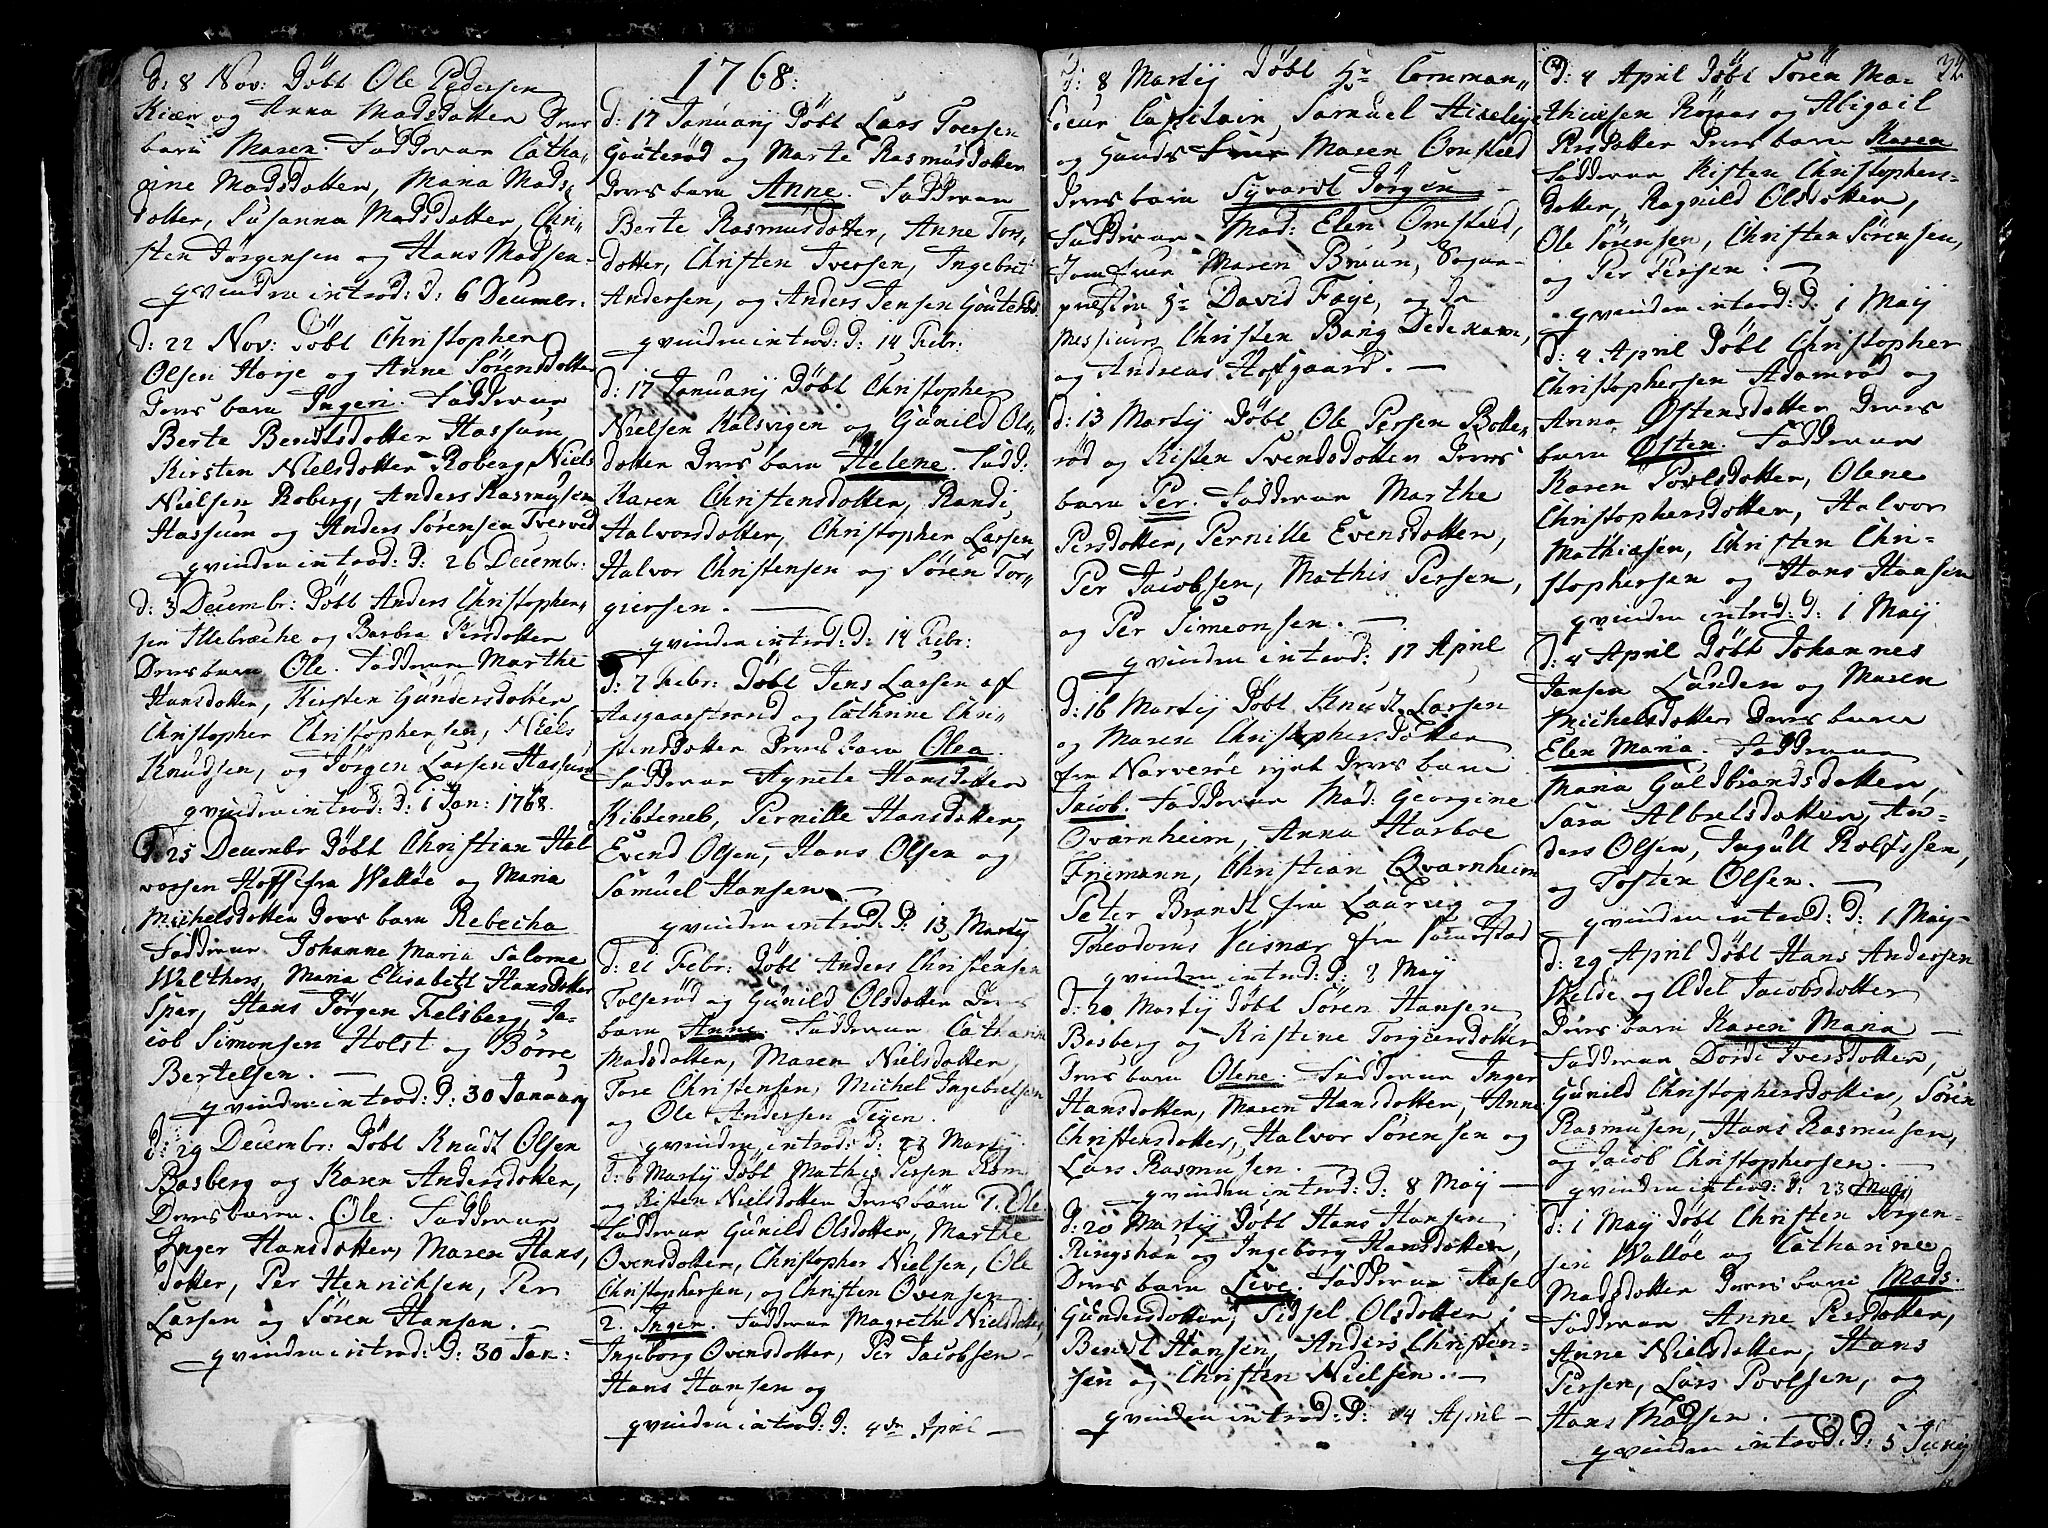 d: 8 Nov: Döbt Ole Pedersen
Kiær og Anna Madsdotter Deres
barn Maren. Fadderne Catha„
rine Madsdotter, Maria Mads„
dotter, Susanna Madsdotter, Chri„
sten Jörgensen og Hans Madsen
qvinden introd: d: 6 Decembr:
d: 22 Nov: Döbt Christopher
Olsen Horje og Anne Sörensdotter
Deres barn Ingeri. Fadderne
Berte Bendtsdotter Hassum,
Kirsten Nielsdotter Roberg, Niels
Nielsen Roberg, Anders Rasmusen
Hassum og Anders Sörensen Tverved
qvinden introd: d: 26 Decembr:
d: 3 Decembr: Döbt Anders Christopher„
sen Illebræche og Barbra Persdotter
Deres barn Ole. Fadderne Marthe
Hansdotter, Kirsten Gundersdotter
Christopher Christophersen, Niels
Knudsen, og Jörgen Larsen Hassum
qvinden introd: d: 1 Jan: 1768.
d: 25 Decembr Döbt Christian Hal
vorsen Hoff fra Wallöe og Maria
Michelsdotter Deres barn Rebecha
Fadderne Johanne Maria Salome
Walthers, Maria Elisabett Hansdotter
Spar, Hans Jörgen Felsberg, Ja„
cob Simonsen Holst og Börre
Bertelsen. —
qvinden introd: d: 30 January
d: 29 Decembr: Döbt Knudt Olsen
Basberg og Karen Andersdotter,
Deres barn. Ole. Fadderne
Inger Hansdotter, Maren Hans„
dotter, Per Henrichsen, Per
Larsen og Sören Hansen. —
qvinden introd: d: 30 Jan:
1768:
d: 17 Januarij Döbt Lars Iversen
Gouteröd og Marte Rasmusdotter
Deres barn Anne. Fadderne
Berte Rasmusdotter, Anne Tors„
dotter, Christen Iversen, Ingebret
Andersen, og Anders Jensen Gouteröd.
qvinden introd: d: 14 Febr:
d: 17 Januarij Döbt Christopher
Nielsen Kalsvigen og Gunild Ols„
dotter Deres barn Helene. Fadd:
Karen Christensdotter, Randi
Halvorsdotter, Christopher Larsen
Halvor Christensen og Sören Tor„
giersen. —
qvinden introd: d: 14 Febr:
d: 7 Febr: Döbt Jens Larsen af
Aasgaarstrand og Cathrine Chri„
stensdotter Deres barn Olea.
Fadderne Agnete Hansdotter
Kibteneb, Pernille Hansdotter,
Evend Olsen, Hans Olsen og
Samuel Hansen —
qvinden introd: d: 13 Martij
d: 21 Febr: Döbt Anders Christensen
Tolseröd og Gunild Olsdotter Deres
barn Anne. Fadderne Catharine
Madsdotter, Maren Nielsdotter,
Tore Christensen, Michel Ingebretsen
og Ole Andersen Teÿen.
qvinden introd: d: Martij
d: 6 Martij Döbt Mathis Persen Röm
og Kisten Nielsdotter Deres börn 1. Ole
Fadderne Gunild Olsdotter, Marthe
Ovensdotter, Christopher Nielsen, Ole
Christophersen, og Christen Ovensen.
2. Inger. Fadderne Magrethe Nielsdotter,
Ingeborg Ovensdotter, Per Jacobsen
Hans Hansen og
qvinden introd: d: 4de April —
d: 8 Martij Döbt Hr Comman„
deur Capitain Samuel Hiselye
og Hands Frue Maren Omsted
Deres barn Syvardt Jörgen —
Fadderne Mad: Elen Omsted,
Jomfrue Maren Bruun, Sogne-
præsten Hr David Faÿe, og de
Messieurs Christen Bang Dedekam,
og Andreas Hofgaard. —
d: 13 Martij Döbt Ole Persen Botte„
röd og Kisten Svendsdotter Deres
barn Per. Fadderne Marthe
Persdotter, Pernille Evensdotter,
Per Jacobsen, Mathis Persen,
og Per Simeonsen. —
qvinden introd: 17 April
d: 16 Martij Döbt Knud Larsen
og Maren Christophersdotter
fra Narveröe Deres barn
Jacob. Fadderne Mad: Georgine
Qvarnheim, Anna Harboe
Friimann, Christian Qvarnheim
Peter Brandt fra Laurvig og
Theodorus Veisnær fra
qvinden introd: d: Maij
d: 20 Martij Döbt Sören Hansen
Basberg og Kristine Torgiersdotter
Deres barn Olene. Fadderne Inger
Hansdotter, Maren Hansdotter, Anne
Christensdotter, Halvor Sörensen og
Lars Rasmusen. —
qvinden introd: d: 8 Maij —
d: 20 Martij Döbt Hans Hansen
Ringshau og Ingeborg Hansdotter,
Deres barn Live. Fadderne Aase
Gundersdotter, Sidsel Olsdotter,
Bendt Hansen, Anders Christen-
sen og Christen Nielsen. —
qvinden introd: d: 4 April —
32
d: 4 April Döbt Sören Ma-
thiesen Römas og Abigail
Persdotter Deres barn Karen
Fadderne Kisten Christophers-
dotter, Ragnild Olsdotter,
Ole Sörensen, Christen Sörensen,
og Per Persen. —
qvinden introd: d: 1 Maij
d: 4 April Döbt Christopher
Christophersen Adamröd og
Anna Östensdotter Deres
barn Östen. Fadderne
Karen Povlsdotter, Olene
Christophersdotter, Halvor
Mathiasen, Christen Chri-
stophersen og Hans Hansen
qvinden introd: d: 1 Maij
d: 4 April Döbt Johannes
Jansen Lunden og Maren
Michelsdotter Deres barn
Elen Maria. Fadderne
Maria Guldbrandsdotter,
Sara Albretsdotter, An-
ders Olsen, Ingult Rolfssen,
og Tosten Olsen. —
qvinden introd: d: 1 Maij-
d: 29 April Döbt Hans Andersen
Velde og Adel Jacobsdotter
Deres barn Karen Maria —
Fadderne Dordi Iversdotter,
Gunild Christophersdotter, Sören
Rasmusen, Hans Rasmusen,
og Jacob Christophersen. —
qvinden introd: d: 23 Maij
d: 1 Maij Döbt Christen Jörgen-
sen Wallöe og Catharine
Madsdotter Deres barn Mads.
Fadderne Anne Persdotter,
Anne Nielsdotter, Hans
Persen, Lars Povlsen, og
Hans Madsen. —
qvinden introd: d: 5 Junij